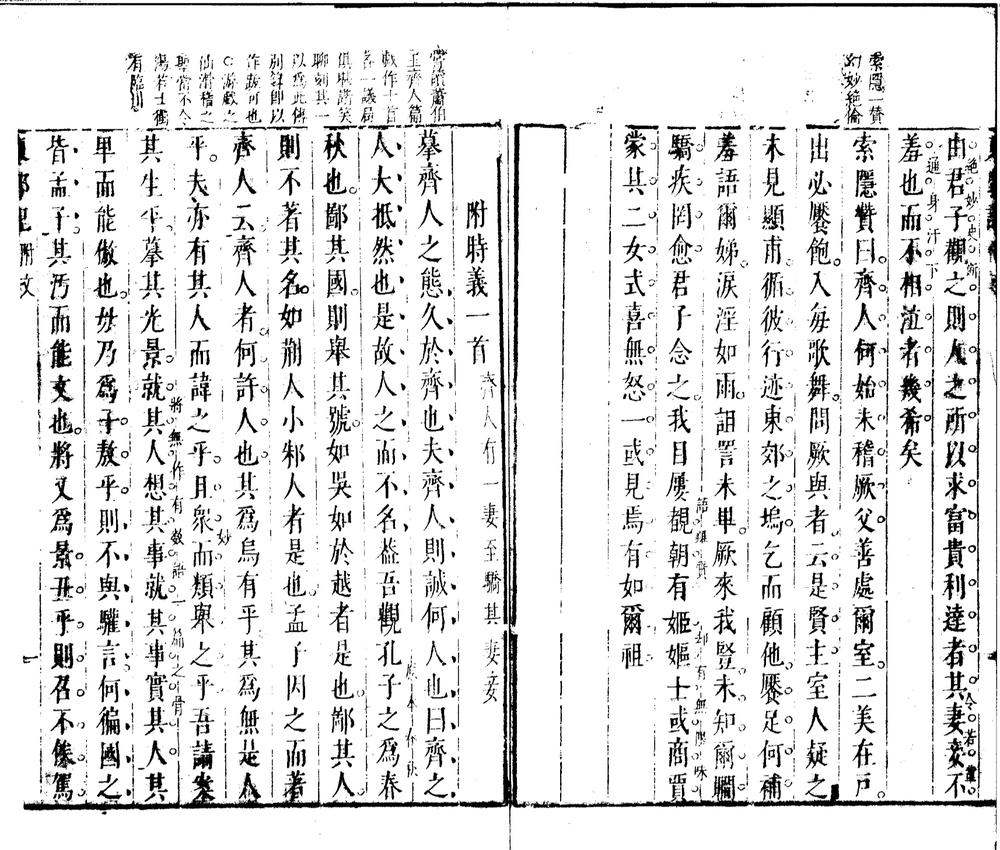 索隱一贊
幻妙絶倫
由君子觀之則人之所以求富貴利達者其妻妾不
絶妙史斷
令若輩
通身汗下
羞也而不相泣者幾希矣
索隱贊曰齊人何始未稽厥父善處爾室二美在戶
出必饜飽入每歌舞問厥與者云是賢主室人疑之
未見顯甫循彼行迹東郊之塢乞而顧他饜足何補
羞語爾娣淚淫如雨詛詈未畢厥來我豎未知爾瞷
語羅賢
却有無限味
驕疾罔愈君子念之我目屢覩朝有姬嫗士或商賈
蒙其二女式喜無怒一或見焉有如爾祖
嘗讀蕭伯
玉齊人篇
戲作十首
各一議局
俱堪諧笑
聊刻其一
以爲此傳
別錄卽以
作疏可也
游戲之
仙滑稽之
聖當不令
湯若士獨
有臨川
附時義一首
齊人有一妻至驕其妻妾
摹齊人之態久於齊也夫齊人則誠何人也曰齊之
人大抵然也是故人之而不名葢吾觀孔子之爲春
秋也鄙其國則舉其號如吳如於越者是也鄙其人
則不著其名如荆人小邾人者是也孟子因之而著
齊人云齊人者何許人也其爲烏有乎其爲無是人
妙
平夫亦有其人而諱之乎且衆而類舉之乎吾請案
將無作有
其生平摹其光景就其人想其事就其事實其人其
卑而能傲也毋乃爲子敖乎則不與驩言何徧國之
皆孟子其汚而能文也將又爲景丑乎則召不俟駕
附文
一